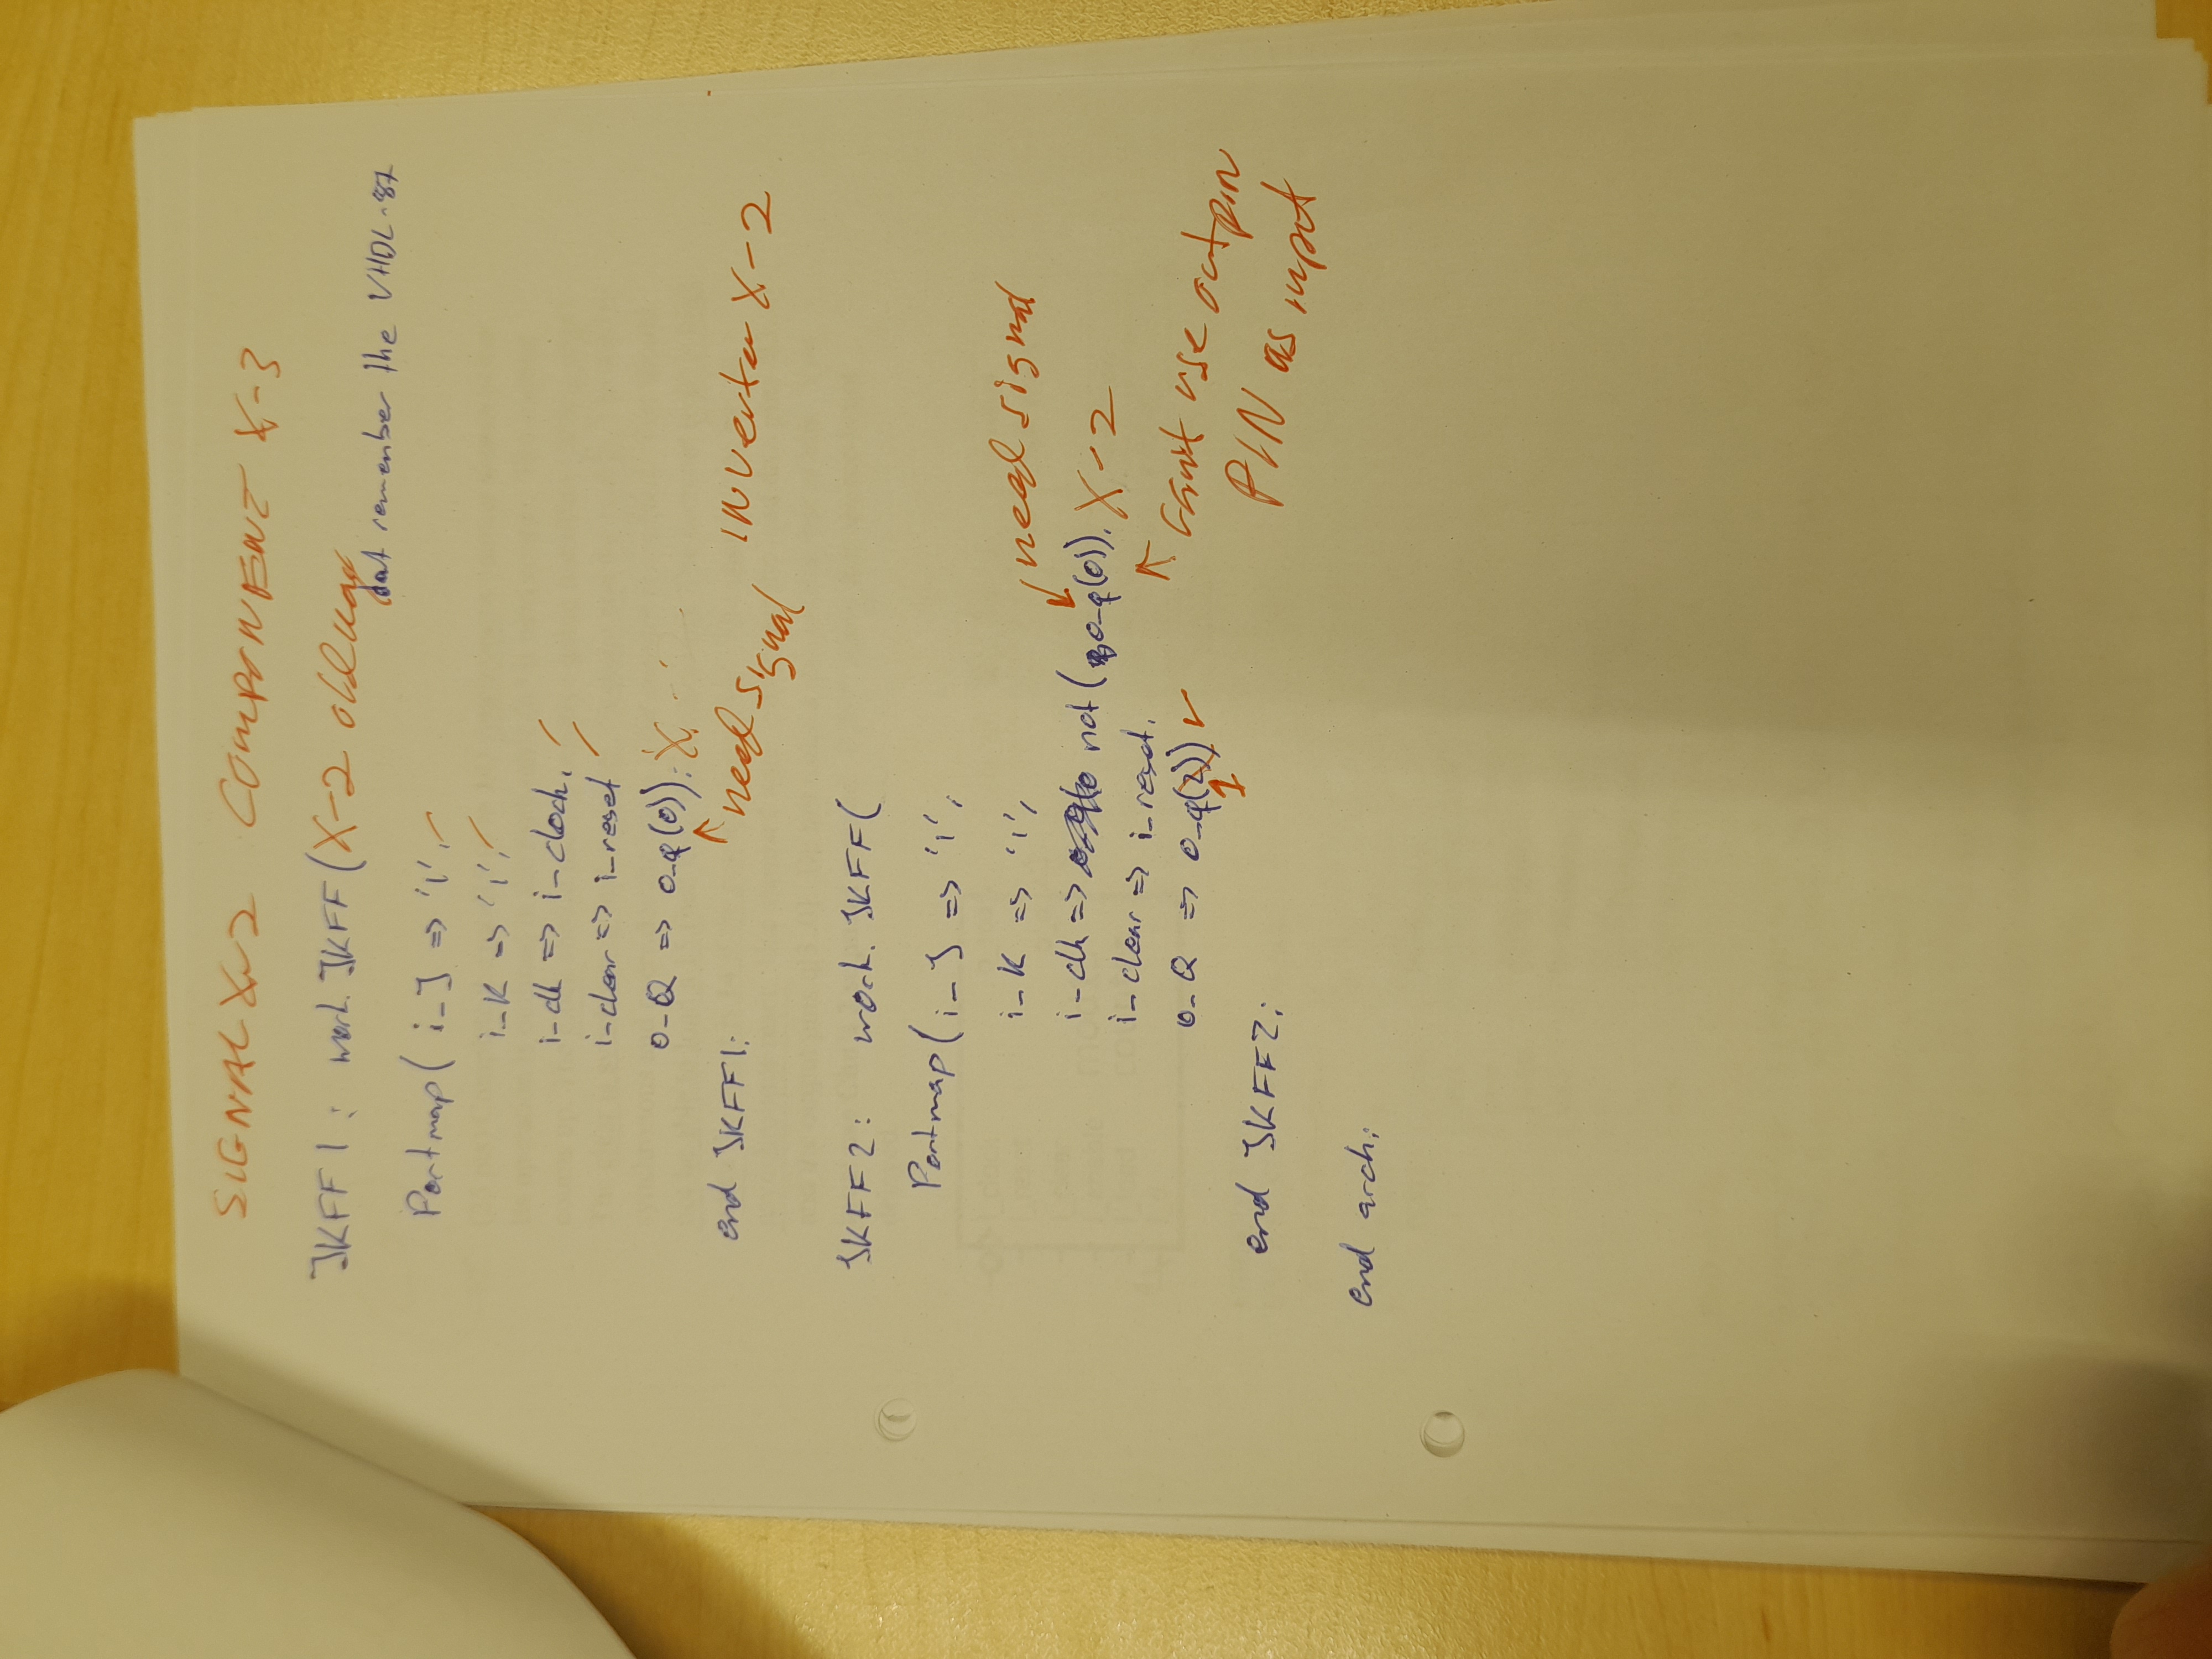 SIGNAL X-2 COMPONENT X-3
JKFF1: work.JKFF( X-2 old way
dont remember the VHDL-87
Portmap( i_J => '1',
i_K => '1',
i_clk => i_clock,
i_clear => i_reset
o_Q => o_q(0)); X
end JKFF1;
need signal
INVerter X-2
JKFF2: work.JKFF(
Portmap( i_J => '1',
i_K => '1',
need signal
i_clk => not( o_q(0)), X-2
i_clear => i_reset,
o_Q => o_q(2))
1
can't use outpin
PIN as input
end JKFF2;
end arch;